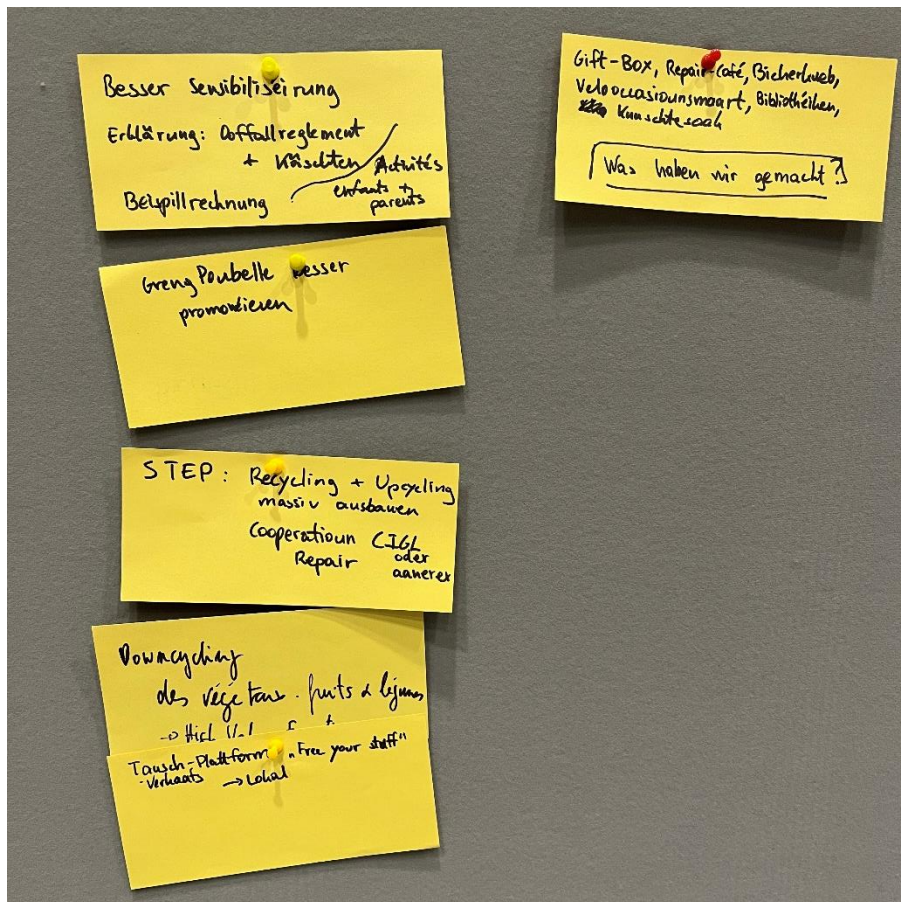 Besser Sensibiliseirung
Erklärung: Offallreglement
+ Käschten
Activités
enfants +
parents
Beispillrechnung
Greng Poubelle besser
promovéieren
STEP: Recycling + Upcycling
massiv ausbauen
Cooperatioun CIGL
Repair oder
anerer
Downcycling
des végétaux. fruits & légumes
Tausch-Plattform "Free your stuff"
-Verkaafs → Lokal
Gift-Box, Repair-Café, Bicherhueb,
Veloouasiounsmaart, Bibliothéiken,
Was haben wir gemacht?